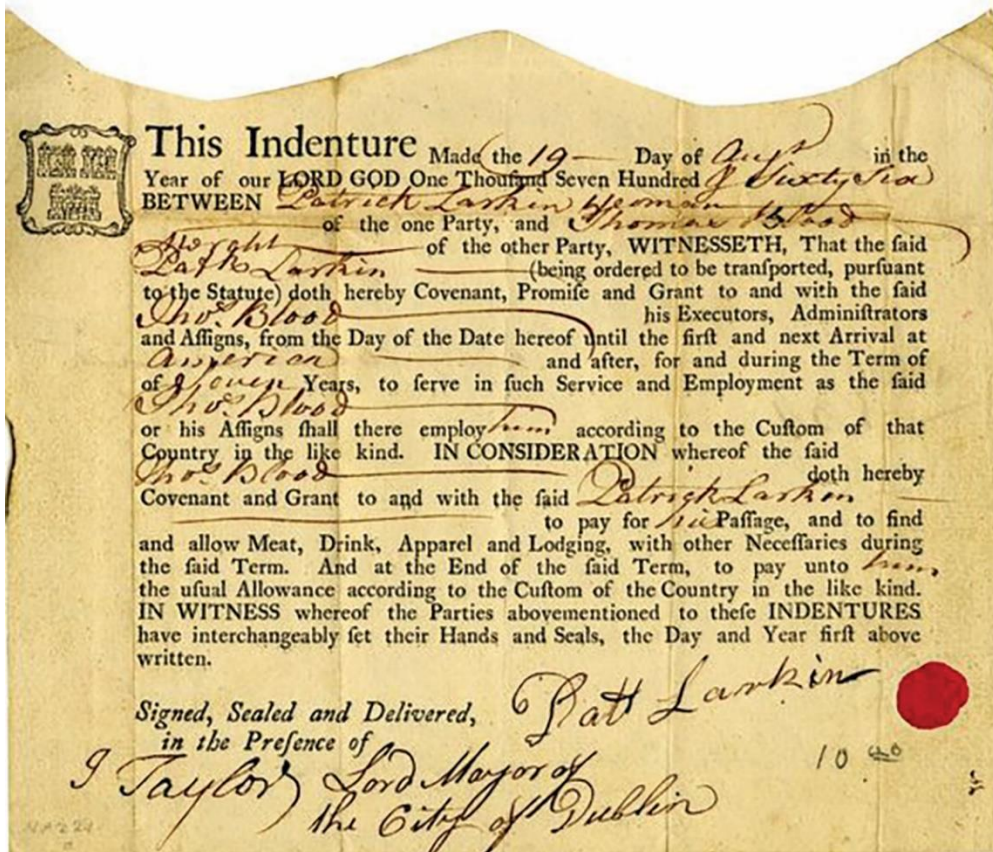 This Indenture Made the 19 — Day of Augt in the
Year of our LORD GOD One Thouſand Seven Hundred & Sixty Six
BETWEEN Patrick Larkin Yeoman
of the one Party, and Thomas Blood
of the other Party, WITNESSETH, That the said
Patk Larkin (being ordered to be tranſported, purſuant
to the Statute) doth hereby Covenant, Promiſe and Grant to and with the ſaid
Thos. Blood his Executors, Adminiſtrators
and Aſſigns, from the Day of the Date hereof until the firſt and next Arrival at
America and after, for and during the Term of
of Seven Years, to ſerve in ſuch Service and Employment as the ſaid
Thos. Blood
or his Aſſigns ſhall there employ him according to the Cuſtom of that
Country in the like kind. IN CONSIDERATION whereof the ſaid
Thos. Blood doth hereby
Covenant and Grant to and with the ſaid Patrick Larken
to pay for his Paſſage, and to find
and allow Meat, Drink, Apparel and Lodging, with other Neceſſaries during
the ſaid Term. And at the End of the ſaid Term, to pay unto him
the uſual Allowance according to the Cuſtom of the Country in the like kind.
IN WITNESS whereof the Parties abovementioned to theſe INDENTURES
have interchangeably ſet their Hands and Seals, the Day and Year firſt above
written.
Patt Larkin
Signed, Sealed and Delivered,
in the Preſence of
J Taylor Lord Mayor of
the City of Dublin
10